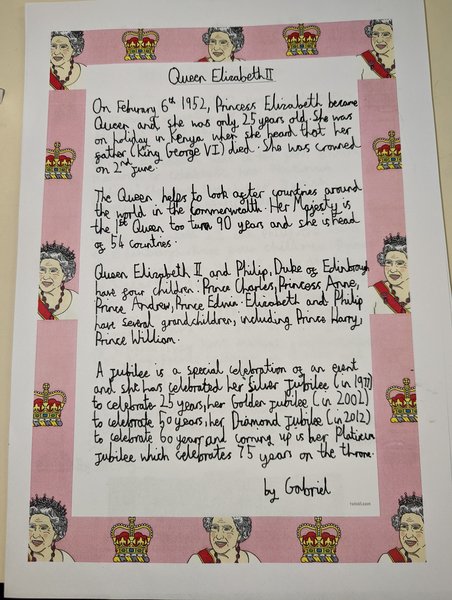 Queen Elizabeth II
On Feburary 6th 1952, Princess Elizabeth became
Queen and she was only 25 years old. She was
on holiday in Kenya when she heard that her
father (King George VI) died. She was crowned
on 2nd June.
The Queen helps to look after countries around
the world in the Commonwealth. Her Majesty is
the 1st Queen too turn 90 years and she is head
of 54 countries.
Queen Elizabeth II and Philip, Duke of Edinbrough
have four children: Prince Charles, Princess Anne,
Prince Andrew, Prince Edwin. Elizabeth and Philip
have several grandchildren, including Prince Harry,
Prince William.
A Jubilee is a special celebration of an event
and she has celebrated her Silver Jubilee (in 1977)
to celebrate 25 years, her Golden Jubilee (in 2002)
to celebrate 50 years, her Diamond Jubilee (in 2012)
to celebrate 60 years and coming up is her Platinum
Jubilee which celebrates 75 years on the throne.
by Gabriel